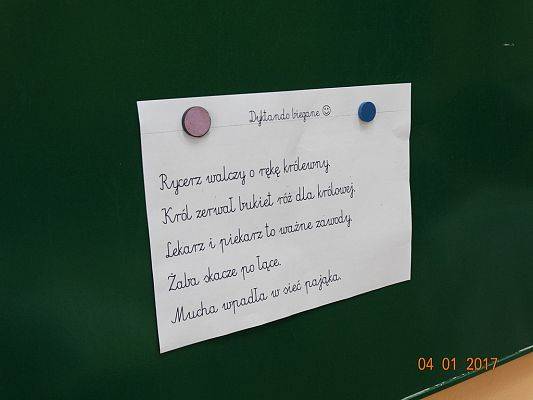 Dyktando biegane ☺
Rycerz walczy o rękę królewny.
Król zerwał bukiet róż dla królowej.
Lekarz i piekarz to ważne zawody.
Żaba skacze po łące.
Mucha wpadła w sieć pająka.
04 01 2017